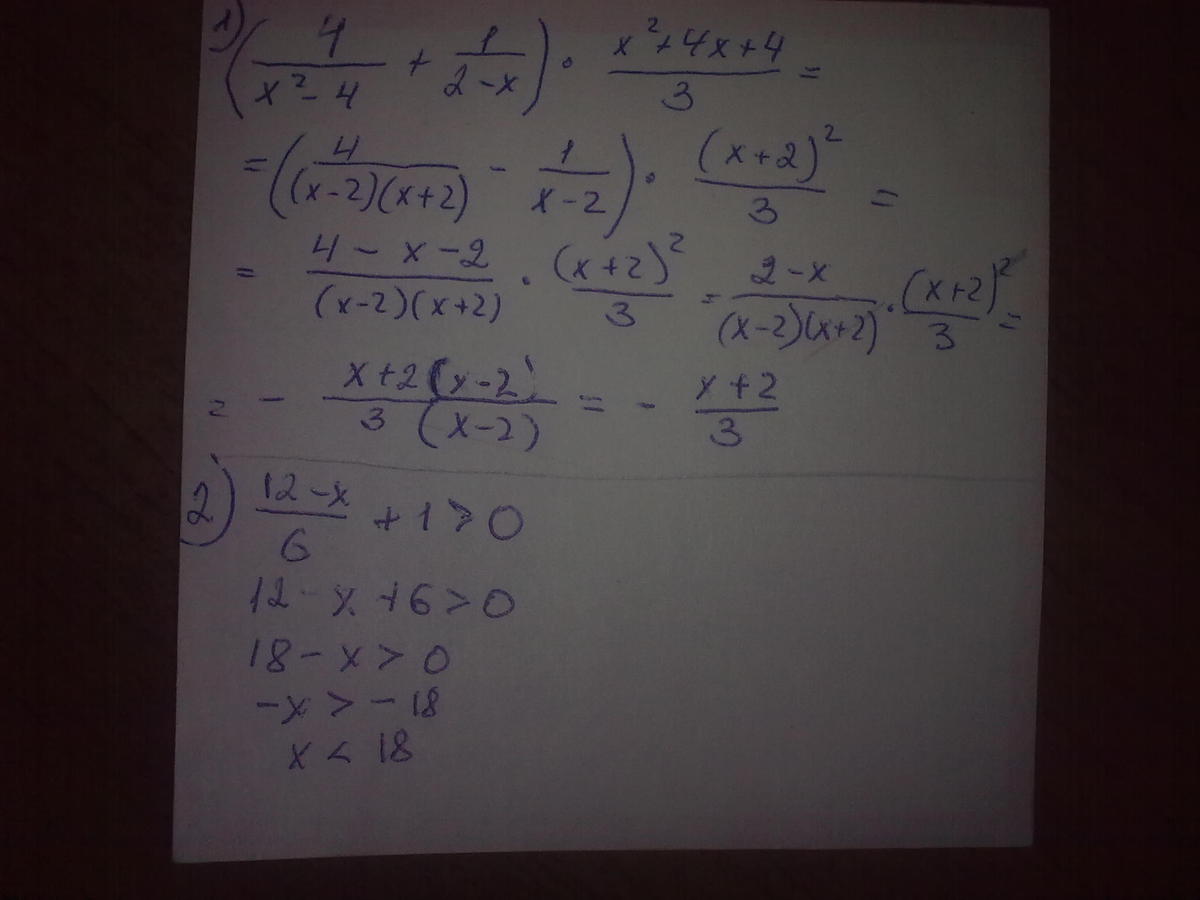 1) (4/(x²-4) + 1/(2-x)) · (x²+4x+4)/3 =
= (4/((x-2)(x+2)) - 1/(x-2)) · (x+2)²/3 =
= (4-x-2)/((x-2)(x+2)) · (x+2)²/3 = (2-x)/((x-2)(x+2)) · (x+2)²/3 =
= - (x+2(x-2))/(3(x-2)) = - (x+2)/3
2) (12-x)/6 + 1 > 0
12-x+6 > 0
18-x > 0
-x > -18
x < 18